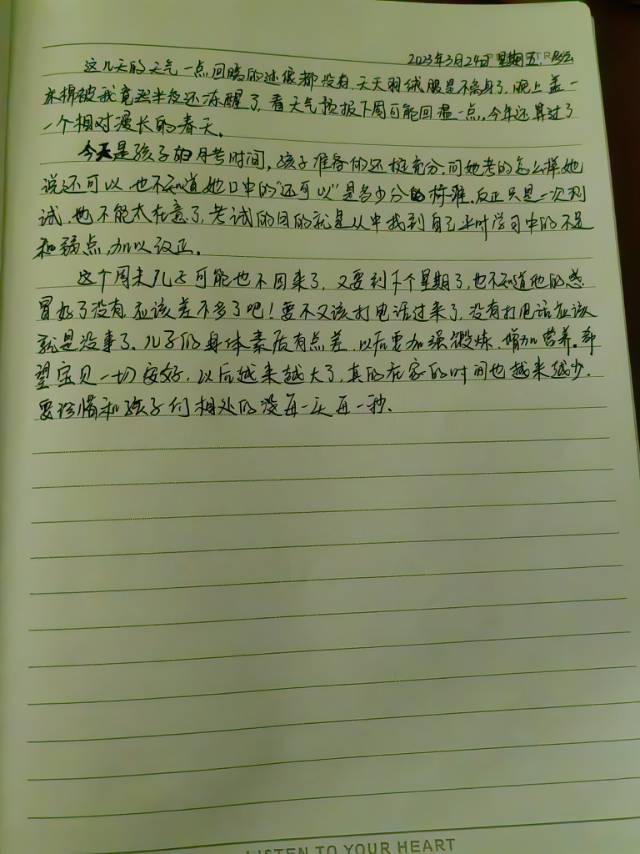 2023年3月24日 星期五.阴
这几天的天气一点回暖的迹像都没有.天天羽绒服是不离身了.晚上盖一
床棉被我竟然半夜还冻醒了.看天气预报下周可能回温一点.今年还算过了
一个相对漫长的春天.
今天是孩子的月考时间,孩子准备的还挺充分.问她考的怎么样她
说还可以.也不知道她口中的"还可以"是多少分的标准.反正只是一次测
试.也不能太在意了.考试的目的就是从中找到自己平时学习中的不足
和弱点.加以改正.
这个周末儿子可能也不回来了.又要到下个星期了.也不知道他的感
冒好了没有.应该差不多了吧!要不又该打电话过来了.没有打电话应该
就是没事了.儿子的身体素质有点差.以后要加强锻炼.增加营养.希
望宝贝一切安好.以后越来越大了.真的在家的时间也越来越少.
要珍惜和孩子们相处的没每一天每一秒.
LISTEN TO YOUR HEART